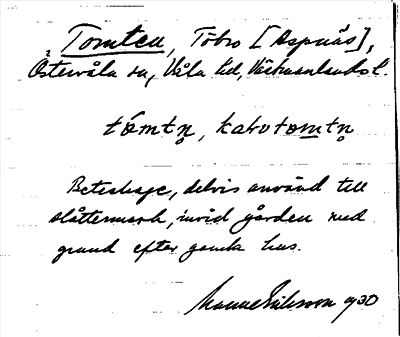 Tomten, Töbo [Aspnäs],
Östervåla sn, Våla hd, Västmanlands l.
tómtn̥, kalvtomtn̥
Beteshage, delvis använd till
slåttermark, invid gården med
grund efter gamla hus.
Manne Eriksson 1930